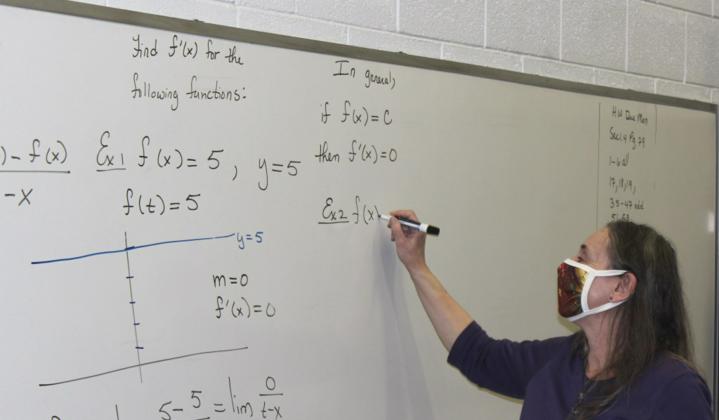 Find f'(x) for the
following functions:
) - f(x)
-x
Ex1 f(x) = 5, y=5
f(t) = 5
y=5
m=0
f'(x)=0
5-5 = lim 0
t-x
In general,
if f(x) = C
then f'(x) = 0
Ex2 f(x)
HW Due Mon
Sec 1.4 Pg 79
1-6 all
17, 18, 19,
35-47 odd